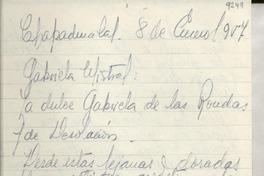 9249
Chapadmalal. 8 de Enero 1957
Gabriela Mistral:
la dulce Gabriela de las Rondas
y de Desolación.
Desde estas lejanas y doradas